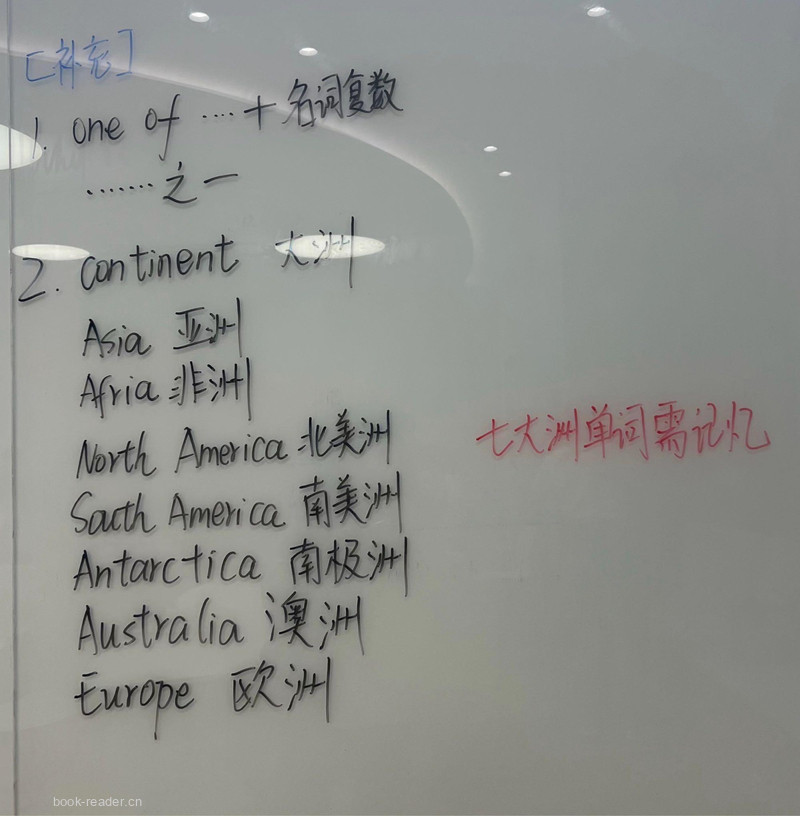 [补充]
1. one of ....+名词复数
.......之一
2. continent 大洲
Asia 亚洲
Afria 非洲
North America 北美洲
七大洲单词需记忆
South America 南美洲
Antarctica 南极洲
Australia 澳洲
Europe 欧洲
book-reader.cn